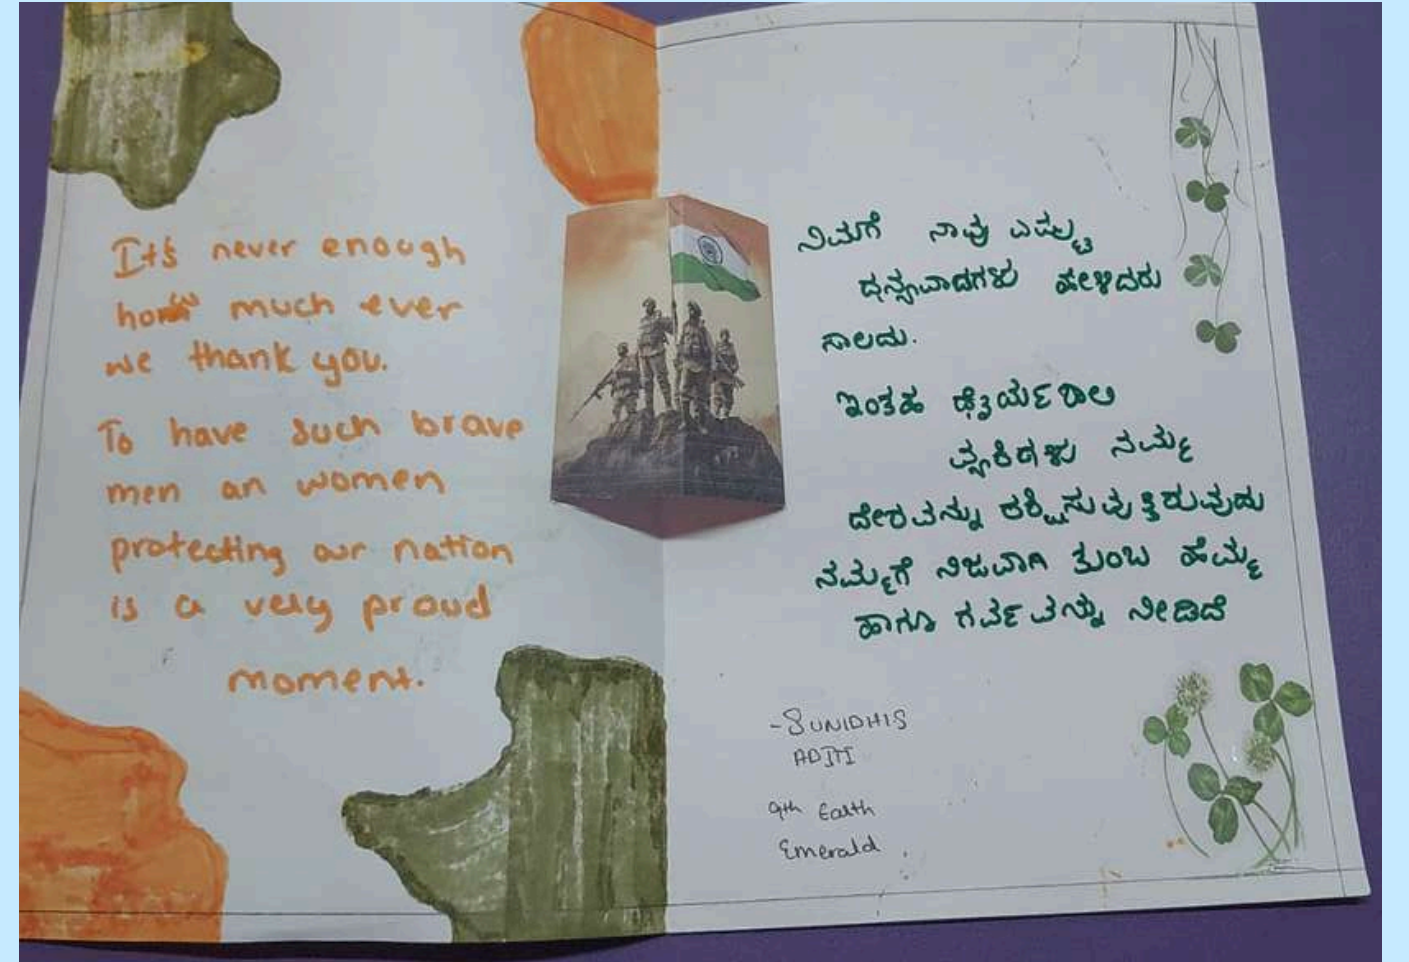 It's never enough
how much ever
we thank you.
To have such brave
men an women
protecting our nation
is a very proud
moment.
ನಿಮಗೆ ನಾವು ಎಷ್ಟು
ಧನ್ಯವಾದಗಳು ಹೇಳಿದರು
ಸಾಲದು.
ಇಂತಹ ಧೈರ್ಯಶಾಲಿ
ವ್ಯಕಿಗಳು ನಮ್ಮ
ದೇಶವನ್ನು ರಕ್ಷಿಸುವುತ್ತಿರುವುದು
ನಮ್ಮಗೆ ನಿಜವಾಗಿ ತುಂಬ ಹೆಮ್ಮೆ
ಹಾಗೂ ಗರ್ವವನ್ನು ನೀಡಿದೆ
-SUNIDHI S
ADITI
9th Earth
Emerald.